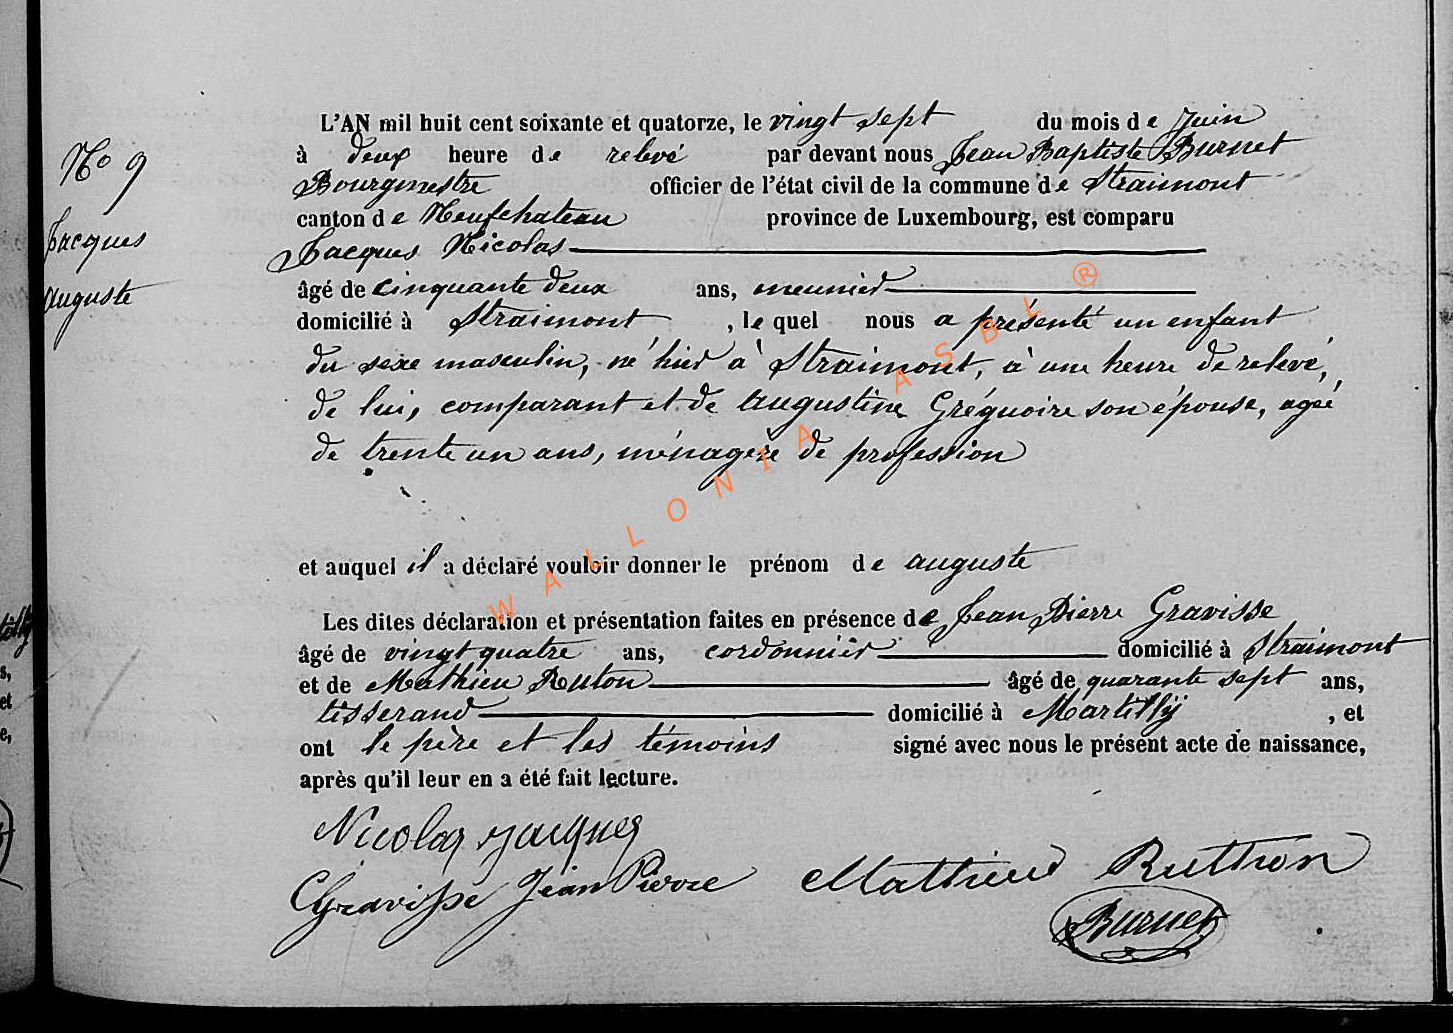 N° 9
Jacques
auguste
L'AN mil huit cent soixante et quatorze, le vingt sept du mois de Juin
à deux heure de relevé par devant nous Jean Baptiste Burnet
Bourgmestre officier de l'état civil de la commune de Straimont
canton de Neufchateau province de Luxembourg, est comparu
Jacques Nicolas
âgé de cinquante deux ans, meunier
domicilié à Straimont, le quel nous a présenté un enfant
du sexe masculin, né hier à Straimont, à une heure de relevé,
de lui, comparant et de Augustine Grégnoire son épouse, agée
de trente un ans, ménagère de profession
et auquel il a déclaré vouloir donner le prénom de auguste
Les dites déclaration et présentation faites en présence de Jean Pierre Gravisse
âgé de vingt quatre ans, cordonnier domicilié à Straimont
et de Mathieu Ruton âgé de quarante sept ans,
tisserand domicilié à Martilly, et
ont le père et les témoins signé avec nous le présent acte de naissance,
après qu'il leur en a été fait lecture.
Nicolas Jacques
Gravisse Jean Pierre Mathieu Ruthon
Burnet
WALLONIA ASBL ®